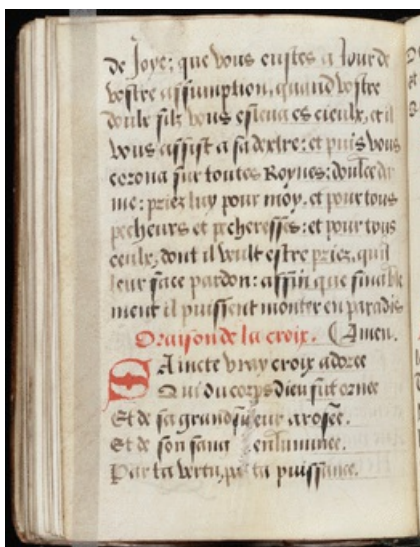 de Joye; que vous eustes a Jour de
vostre assumption, quand vostre
doulx filz vous esleua es cieulx, et il
vous assist a sa dextre: et puis vous
corona sur toutes Roynes: doulce da
me: priez luy pour moy, et pour tous
pecheurs et pecheresses: et pour tous
ceulx, dont il veult estre priez, quil
leur face pardon: affin que finable
ment il puissent monter en paradis
Oraison de la croix. Amen.
Saincte vray croix adoree
Qui du corps dieu fut ornee
Et de sa grand sueur arosee.
Et de son sang enluminee.
Par ta vertu, par ta puissance.